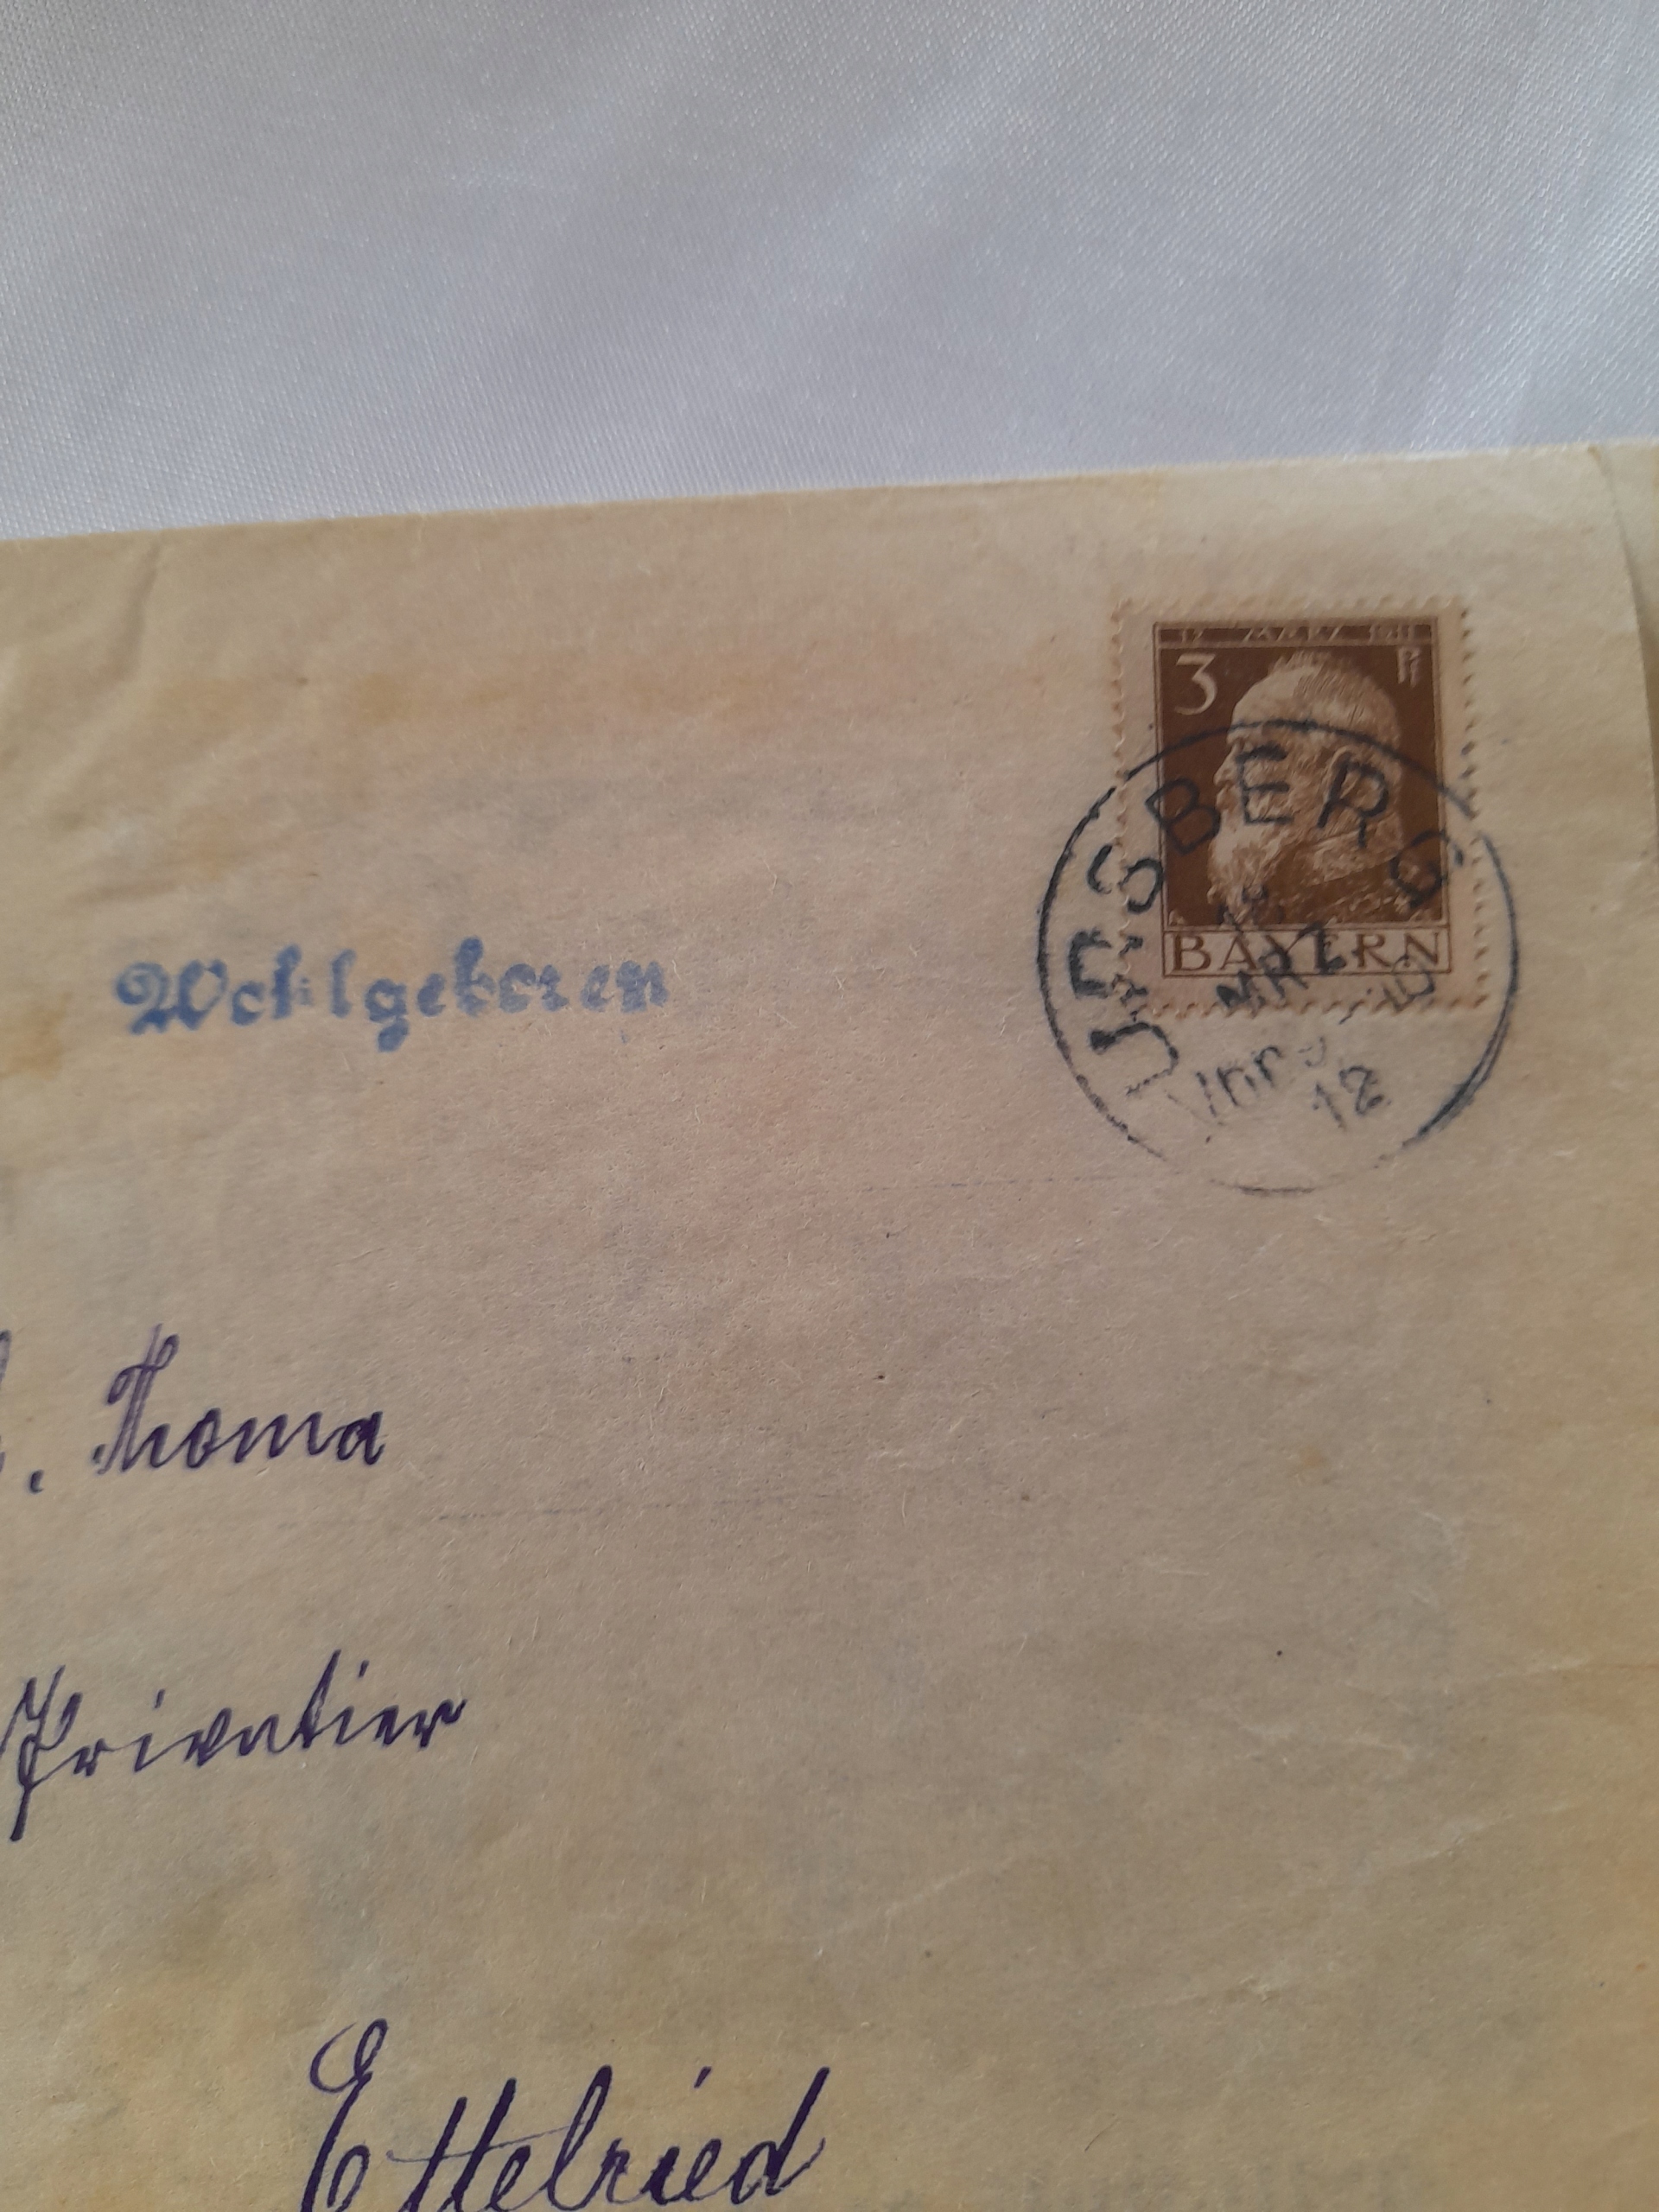 12 MÄRZ 1911
3 Pf
BAYERN
URSBERG
MRZ
12
Wohlgeboren
Thoma
Privatier
Ettelried